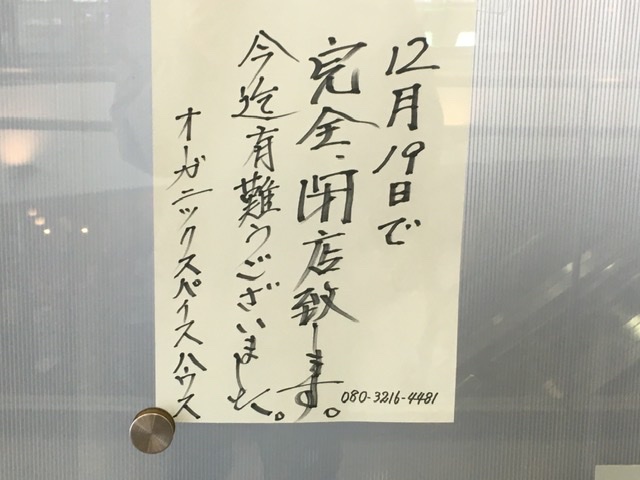 12月19日で
完全閉店致します。
今迄有難うございました。
オーガニックスパイスハウス
080-3216-4481